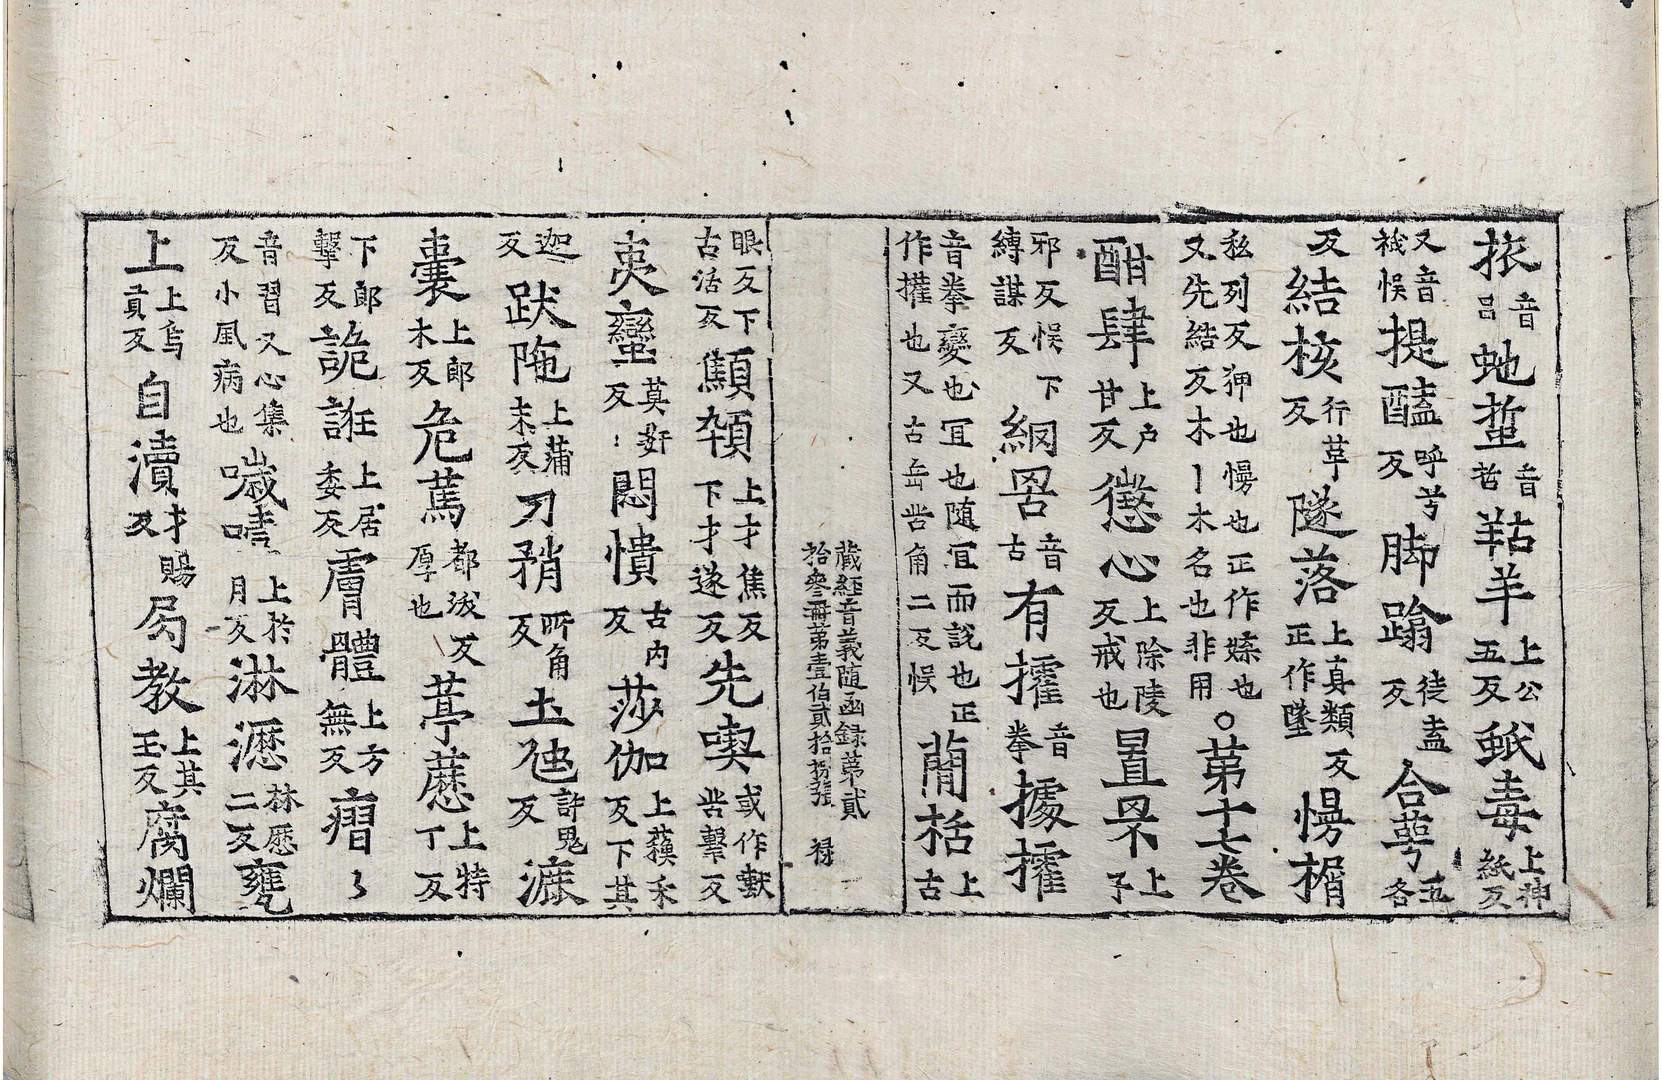 挔音呂虵蜇音哲羖羊上公五反蚔毒上神紙反
又音祇悮提醘呼兮反脚蹹徒盍反合萼五各
反結核行革反隧落上真類反正作墜㦬楈
私列反狎也㦬也正作媟也又先結反木丨木名也非用○第十七卷
酣肆上户甘反懲心上除陵反戒也罝罘上子
邪反悮下縛謀反網罟音古有㩲音拳據㩲
音拳變也冝也随冝而說也正作權也又古岳呰角二反悮蕳栝上古
藏經音義隨函録第貳拾叄冊第壹伯貳拾捌張 禄
眼反下古活反顦顇上才焦反下才遂反先喫或作𪘨呰擊反
夷蠻莫奸反悶憒古内反莎伽上蘓禾反下其
迦反跋陁上蒲末反刀矟所角反土虺許鬼反漉
囊上郎木反危篤都沷反厚也葶藶上特丁反
下郎擊反詭誑上居委反膚體上方無反㿇
音習又心集反小風病也噦嗌上於月反淋瀝林歷二反甕
上上烏貢反自漬才賜反局教上其玉反腐爛